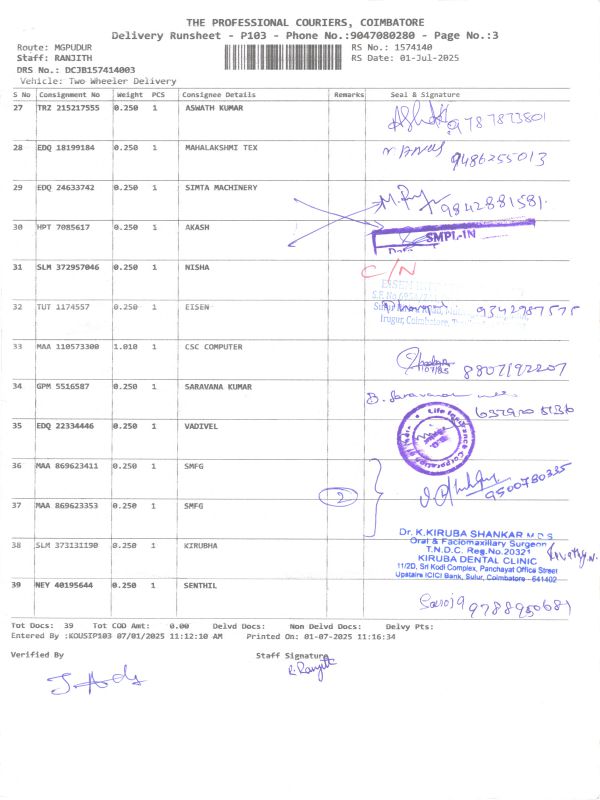 THE PROFESSIONAL COURIERS, COIMBATORE
Delivery Runsheet - P103 - Phone No.:9047080280 - Page No.:3
Route: MGPUDUR RS No.: 1574140
Staff: RANJITH RS Date: 01-Jul-2025
DRS No.: DCJB157414003
Vehicle: Two Wheeler Delivery
S No Consignment No Weight PCS Consignee Details Remarks Seal & Signature
27 TRZ 215217555 0.250 1 ASWATH KUMAR 9787873801
28 EDQ 18199184 0.250 1 MAHALAKSHMI TEX 9486255013
29 EDQ 24633742 0.250 1 SIMTA MACHINERY 9842881581.
30 HPT 7085617 0.250 1 AKASH SMPL-IN
31 SLM 372957046 0.250 1 NISHA C/N
32 TUT 1174557 0.250 1 EISEN 9342987575
Irugur, Coimbatore
33 MAA 110573300 1.010 1 CSC COMPUTER 8807192207
34 GPM 5516587 0.250 1 SARAVANA KUMAR B. Saravana
35 EDQ 22334446 0.250 1 VADIVEL Life Insurance Corporation of India
36 MAA 869623411 0.250 1 SMFG
2 9500780335
37 MAA 869623353 0.250 1 SMFG
Dr. K.KIRUBA SHANKAR M.D.S
Oral & Faciomaxillary Surgeon
38 SLM 373131190 0.250 1 KIRUBHA T.N.D.C. Reg.No.20321
KIRUBA DENTAL CLINIC
11/2D, Sri Kodi Complex, Panchayat Office Street
Upstairs ICICI Bank, Sulur, Coimbatore - 641402
39 NEY 40195644 0.250 1 SENTHIL Saroja 9788950681
Tot Docs: 39 Tot COD Amt: 0.00 Delvd Docs: Non Delvd Docs: Delvy Pts:
Entered By :KOUSIP103 07/01/2025 11:12:10 AM Printed On: 01-07-2025 11:16:34
Verified By Staff Signature
R. Ranjith